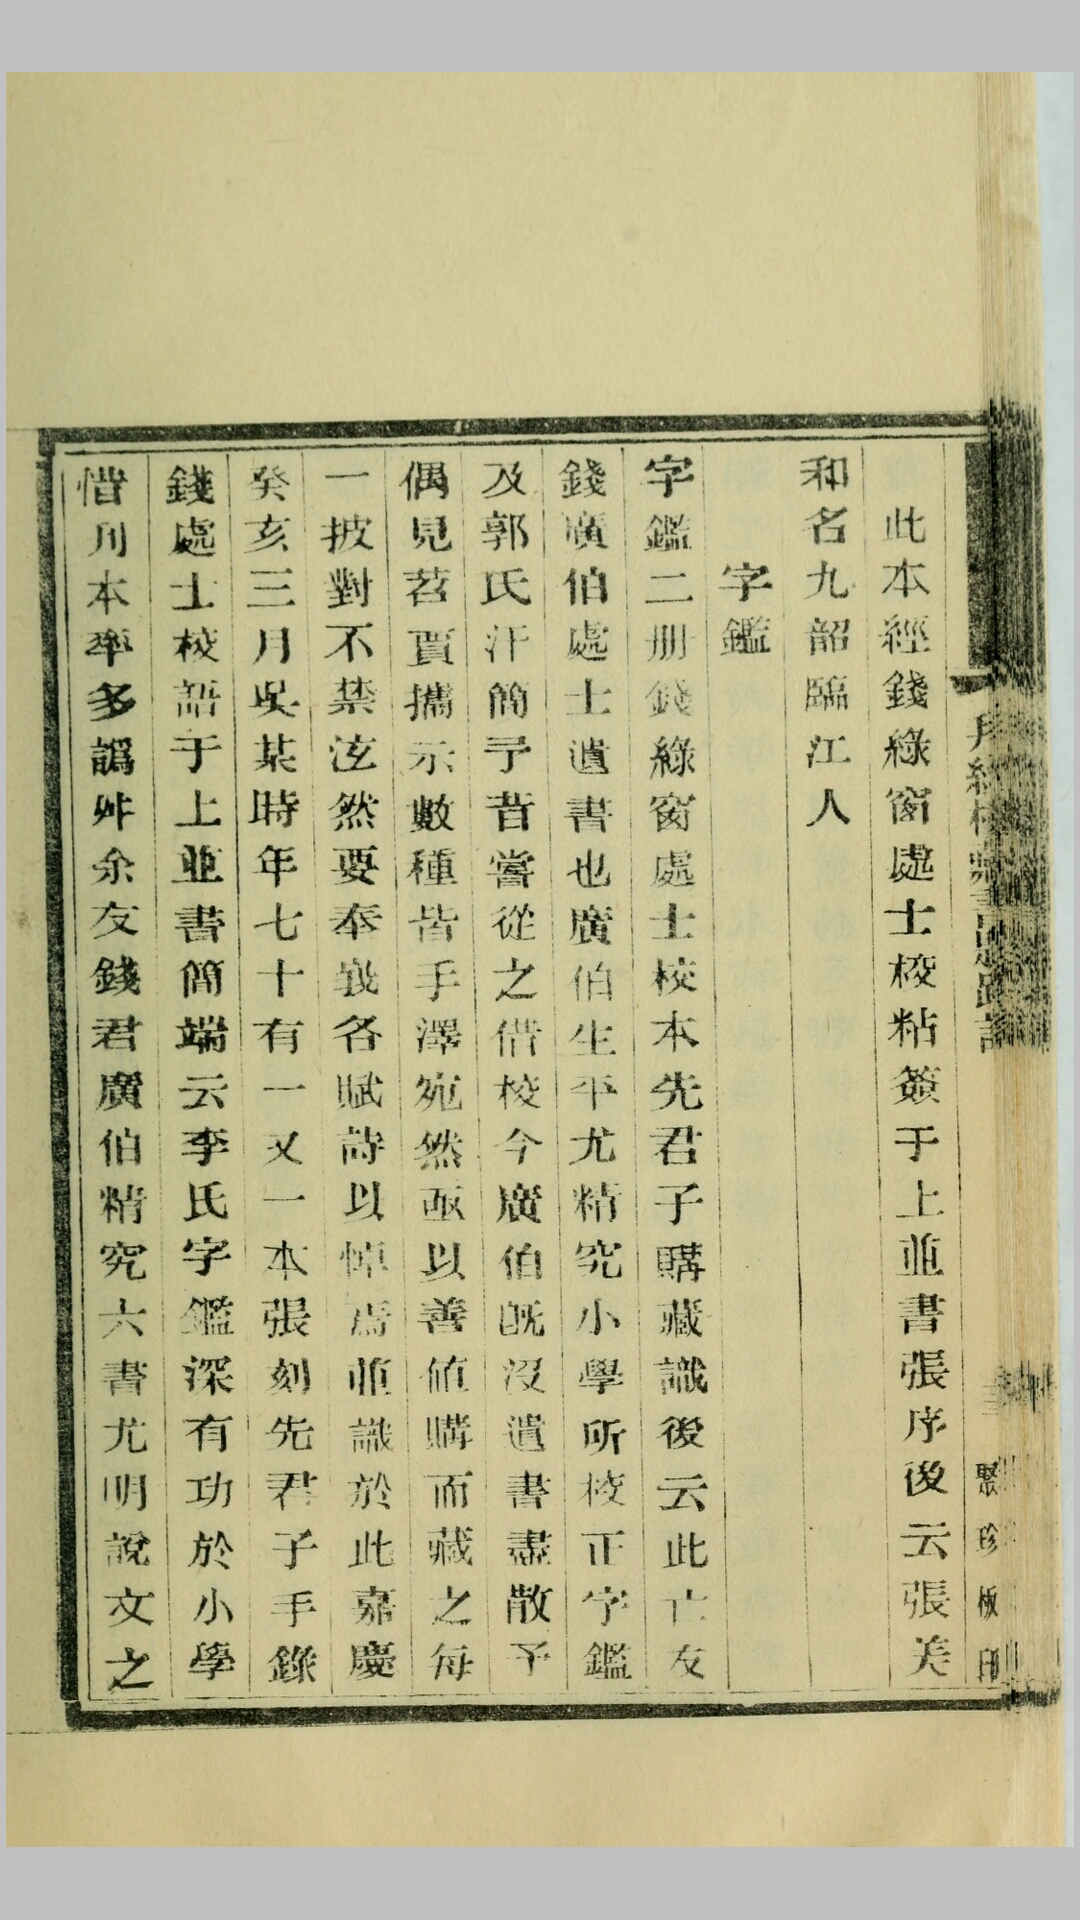 此本經錢綠窗處士校粘簽于上並書張序後云張美
和名九韶臨江人
字鑑
字鑑二册錢綠窗處士校本先君子購藏識後云此亡友
錢廣伯處士遺書也廣伯生平尤精究小學所校正字鑑
及郭氏汗簡予昔嘗從之借校今廣伯旣沒遺書盡散予
偶見苕賈攜示數種皆手澤宛然亟以善値購而藏之每
一披對不禁泫然要奉峩各賦詩以悼焉並識於此嘉慶
癸亥三月吳某時年七十有一又一本張刻先君子手錄
錢處士校語于上並書簡端云李氏字鑑深有功於小學
惜刋本率多譌舛余友錢君廣伯精究六書尤明說文之
聚珍板印